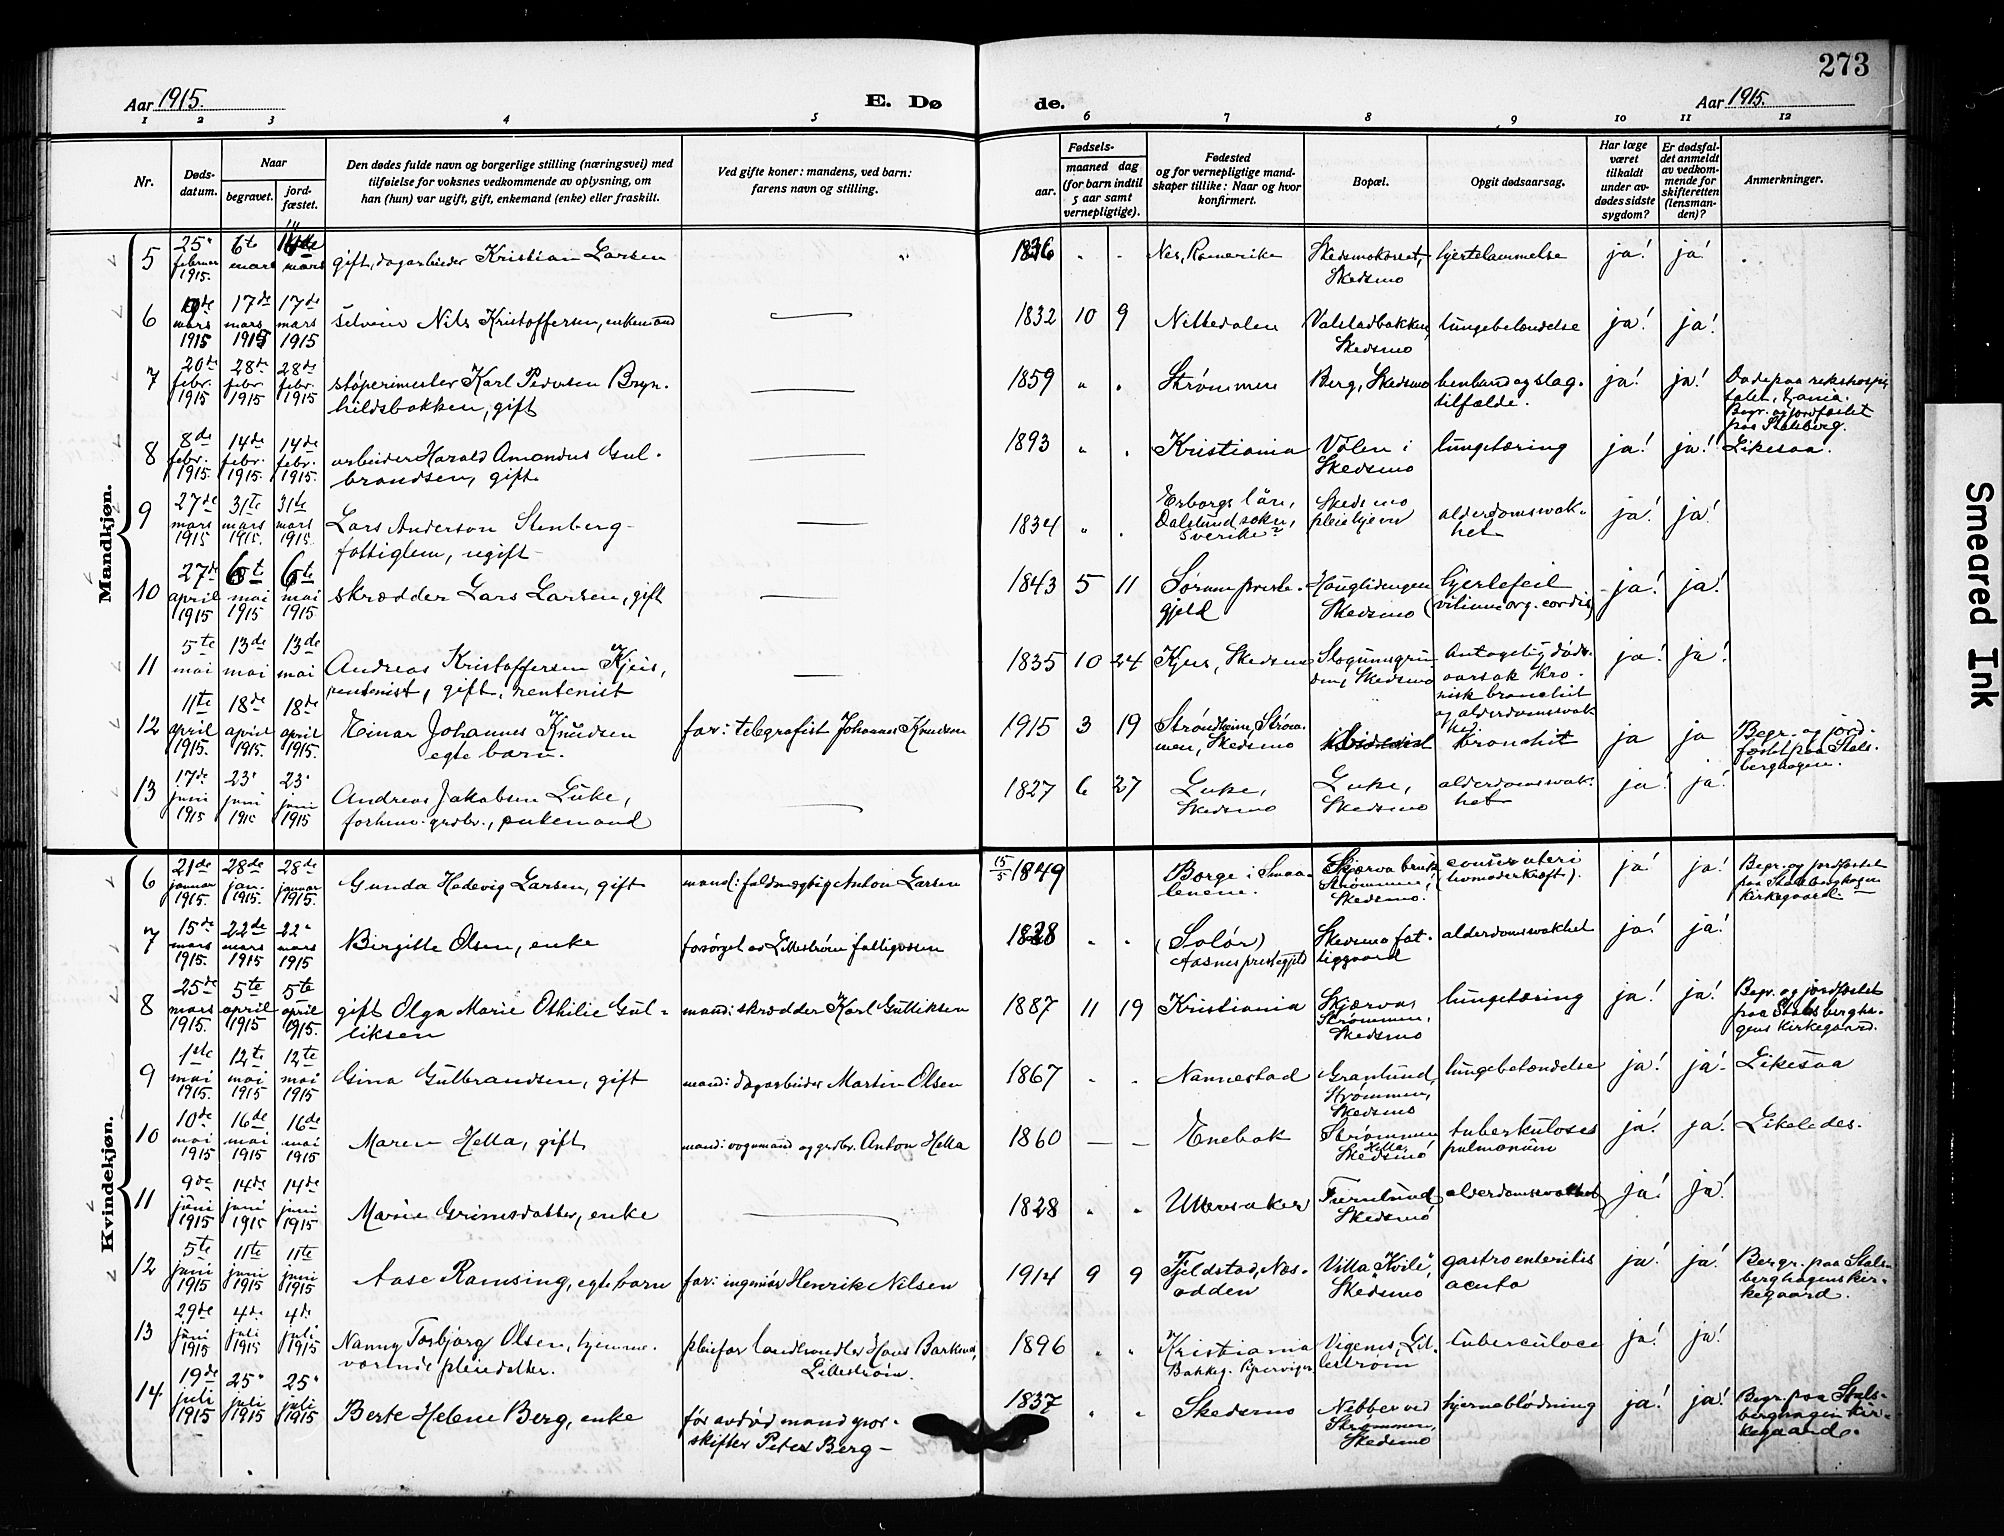 273
Aar 1915.
E. Dø
de.
Aar 1915.
1 2 3 4 5 6 7 8 9 10 11 12
Nr.
Døds-
datum.
Naar
begravet.
jord-
fæstet.
Den dødes fulde navn og borgerlige stilling (næringsvei) med
tilføielse for voksnes vedkommende av oplysning, om
han (hun) var ugift, gift, enkemand (enke) eller fraskilt.
Ved gifte koner: mandens, ved barn:
farens navn og stilling.
Fødsels-
aar.
maaned dag
(for barn indtil
5 aar samt
vernepligtige).
Fødested
og for vernepligtige mand-
skaper tillike: Naar og hvor
konfirmert.
Bopæl.
Opgit dødsaarsag.
Har læge
været
tilkaldt
under av-
dødes sidste
sygdom?
Er dødsfal-
det anmeldt
av vedkom-
mende for
skifteretten
(lensman-
den)?
Anmerkninger.
Mandkjøn.
5 25 februar 1915. 6te mars mars gift, dagarbeider Kristian Larsen 1836 Nes, Romerike Skedsmokorset, Skedsmo hjertelammelse ja! ja!
6 mars 1915 17de mars 1915 17de mars 1915 Nils Kristoffersen, enkemand 1832 10 9 Nittedalen Valstadbakken, Skedsmo lungebetændelse ja! ja!
7 20de febr. 1915 28de febr 1915 28de febr. 1915 støperimester Karl Pedersen Bryn-
hildsbakken, gift 1859 Strømmen Berg, Skedsmo benbrand og slag-
tilfælde. ja! ja! Døde paa rikshospi-
talet, Kr.ania.
Begr. og jordfæstet
paa Stalsberg.
8 8de febr. 1915. 14de febr. 1915. 14de febr. 1915. arbeider Harald Amandus Gul-
brandsen, gift. 1893 Kristiania Volen i
Skedsmo lungetæring ja! ja! Likesaa.
9 27de mars 1915 31te mars 1915. 31te mars 1915. Lars Anderson Stenberg
fattiglem, ugift 1834 Dalslund sokn,
Sverike Skedsmo
pleiehjem alderdomssvak-
het ja! ja!
10 27de april 1915 6te mai 1915 6te mai 1915 skrædder Lars Larsen, gift 1843 5 11 Sørum preste-
gjeld Hauglidengen
Skedsmo hjertefeil
(vitium org. cordis) ja! ja!
11 5te mai 13de mai 13de mai Andreas Kristoffersen Kjus,
rentenist, gift, rentenist 1835 10 24 Kjus, Skedsmo Skedsmo Antagelig døds-
aarsak kro-
nisk bronchit
og alderdomssvak-
het. ja! ja!
12 11te april 1915. 18de april 1915. 18de april 1915. Einar Johannes Knudsen
egte barn. far: telegrafist Johannes Knudsen 1915 3 19 Strøndheim, Strøm-
men, Skedsmo bronchit ja ja Begr. og jord-
fæstet paa Stals-
berghagen.
13 17de juni 1915 23 juni 1915 23 juni 1915 Andreas Jakobsen Luke,
forhenv. grdbr., enkemand 1827 6 27 Luke,
Skedsmo Luke,
Skedsmo alderdomssvak-
het ja! ja!
Kvindekjøn.
6 21de januar 1915. 28de jan. 1915. 28de januar 1915. Gunda Hedevig Larsen, gift mand: fuldmægtig Anton Larsen 15/5 1849 Borge i Smaa-
lenene. Skjærva bruk
Strømmen,
Skedsmo. cancer uteri
(livmoderkræft). ja! ja! Begr. og jordfæstet
paa Stalsberghagen
kirkegaard.
7 15de mars 1915. 22de mars 1915 22 mars 1915 Birgitte Olsen, enke forsørget av Lillestrøm fattigvæsen 1828 (Solør)
Aasnes prestegjeld Skedsmo fat-
tiggaard alderdomssvakhet ja! ja!
8 25de mars 1915. 5te april 1915 5te april 1915. gift Olga Marie Othilie Gul-
liksen mand: skrædder Karl Gulliksen 1887 11 19 Kristiania Skjærva,
Strømmen,
Skedsmo lungetæring ja! ja! Begr. og jordfæstet
paa Stalsbergha-
gens kirkegaard.
9 1ste mai 1915. 12te mai 1915 12te mai 1915 Gina Gulbrandsen, gift mand: dagarbeider Martin Olsen 1867 Nannestad Granlund,
Strømmen,
Skedsmo lungebetændelse ja! ja! Likesaa
10 10de mai 1915 16de mai 1915 16de mai 1915 Maren Hella, gift mand: vognmand og grdbr. Anton Hella 1860 — — Enebak Strømmen
Hella,
Skedsmo tuberkuloses
pulmonum ja! ja! Likeledes.
11 9de juni 1915 14de juni 1915 14de juni 1915 Marie Grimsdatter, enke 1828 Ullensaker Furulund
Skedsmo alderdomssvakhet ja! ja!
12 5te juni 1915 11te juni 1915 11te juni 1915 Aase Ramsing, egte barn far: ingeniør Henrik Nilsen 1914 9 9 Fjeldstad, Næs-
odden Villa "Hvile",
Skedsmo gastroenteritis
acuta ja! ja! Begr. paa Stals-
berghagens kir-
kegaard.
13 29de juni 1915 4de juli 1915 4de juli 1915 Nanny Torbjørg Olsen, hjemme-
værende pleiedatter. pleiefar landhandler Hans
Lillestrøm. 1896 Kristiania Vigernes, Lil-
lestrøm tuberculose ja! ja!
14 19de juli 1915 25 juli 1915 25 juli 1915 Berte Helene Berg, enke før avdød mand spor-
skifter Peter Berg 1837 Skedsmo Nebber ved
Strømmen,
Skedsmo hjerneblødning ja! ja! Begr. paa Stals-
berghagen kir-
kegaard.
Smeared Ink